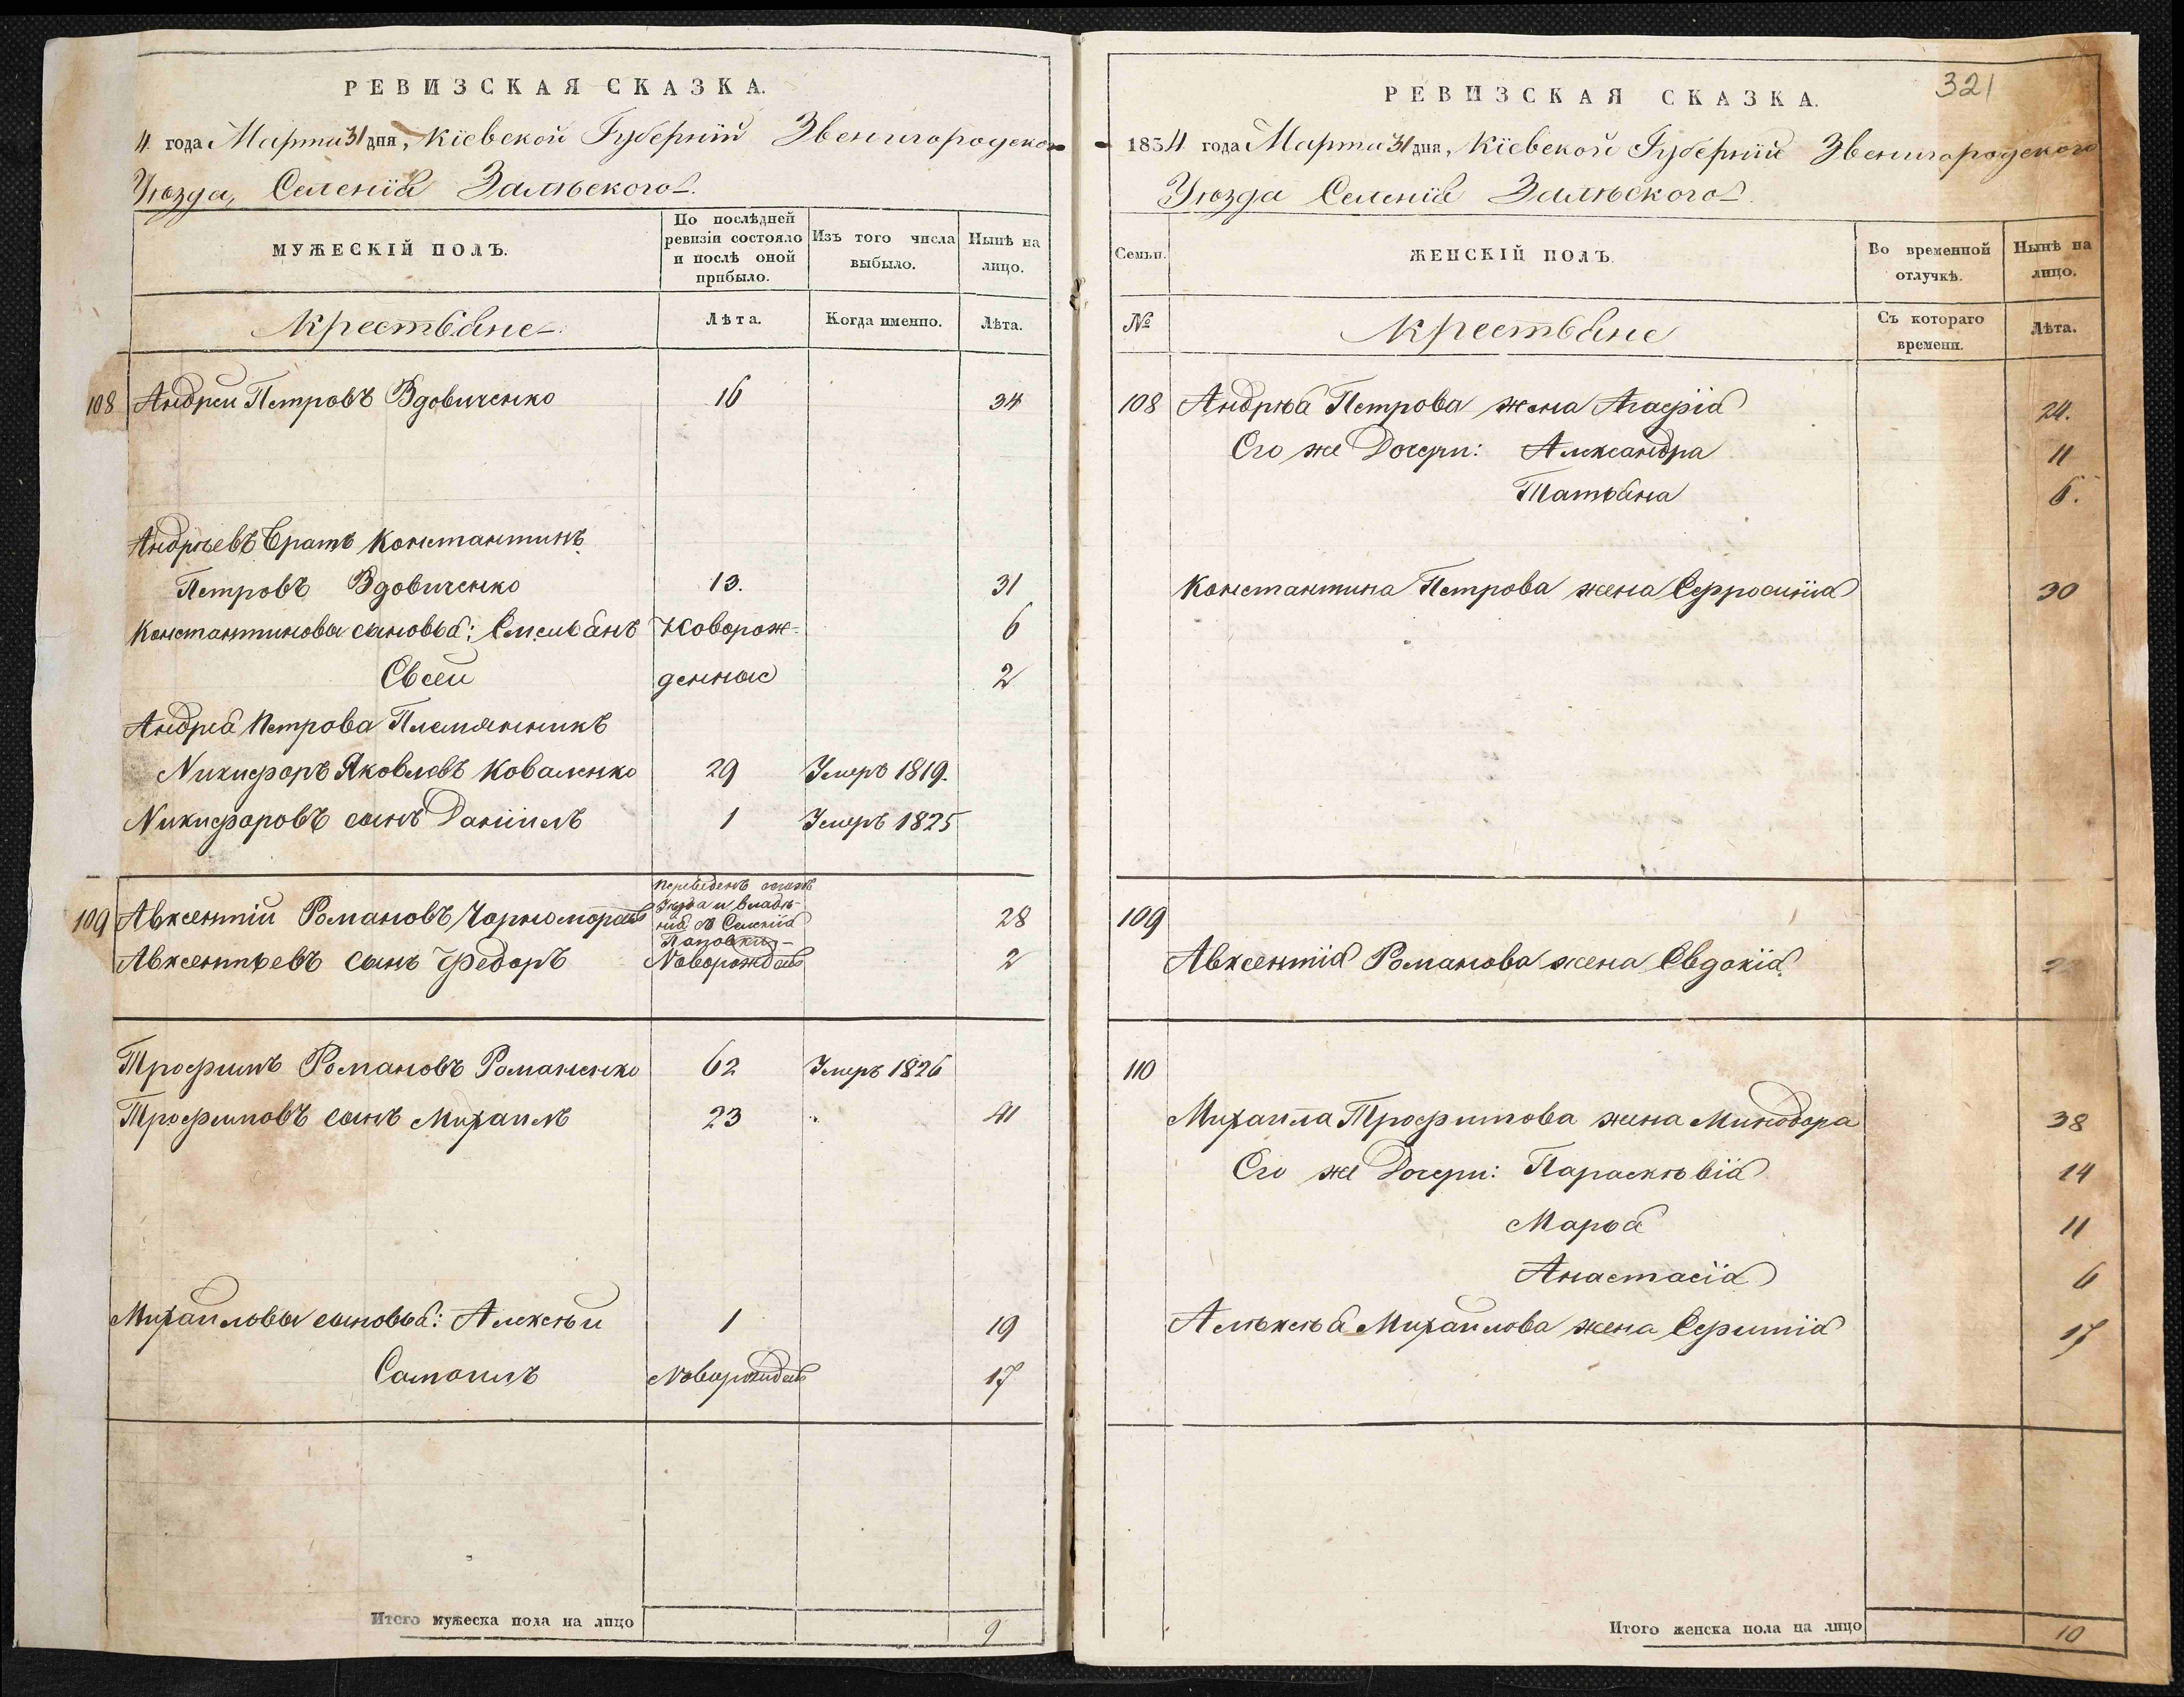 РЕВИЗСКАЯ СКАЗКА.
4 года Марта 31 дня, Кіевской Губерніи Звенигородско-
Уѣзда, Селенія Залѣского.
МУЖЕСКІЙ ПОЛЪ.
По послѣдней ревизіи состояло и послѣ оной прибыло.
Изъ того числа выбыло.
Нынѣ на лицо.
Крестьяне
Лѣта.
Когда именно.
Лѣта.
108 Андрей Петровъ Вдовиченко 16 34
Андрѣевъ братъ Константинъ
Петровъ Вдовиченко 13. 31
Константиновы сыновья: Емельянъ Новорож- 6
Евсей денные 2
Андрея Петрова Племянникъ
Никифоръ Яковлевъ Коваленко 29 Умеръ 1819.
Никифоровъ сынъ Даніилъ 1 Умеръ 1825
Переведенъ
и владѣ-
нія Селенія
109 Авксентій Романовъ Чорноморецъ 28
Авксентьевъ сынъ Федоръ Новорожден 2
Трофимъ Романовъ Романенко 62 Умеръ 1826
Трофимовъ сынъ Михаилъ 23 41
Михайловы сыновья: Алексѣй 1 19
Самоилъ Новорожден 17
Итого мужеска пола на лицо 9
321
РЕВИЗСКАЯ СКАЗКА.
1834 года Марта 31 дня, Кіевской Губерніи Звенигородского
Уѣзда Селенія Залѣского.
Семьи.
ЖЕНСКІЙ ПОЛЪ.
Во временной отлучкѣ.
Нынѣ на лицо.
№
Крестьяне
Съ котораго времени.
Лѣта.
108 Андрѣя Петрова жена Агафія 24.
Его же Дочери: Александра 11
Татьяна 6.
Константина Петрова жена Ефросинія 30
109
Авксентія Романова жена Евдокія
110
Михаила Трофимова жена Минодора 38
Его же Дочери: Параскѣвія 14
Марья 11
Анастасія 6
Алѣксѣя Михайлова жена Ефимія 17
Итого женска пола на лицо 10